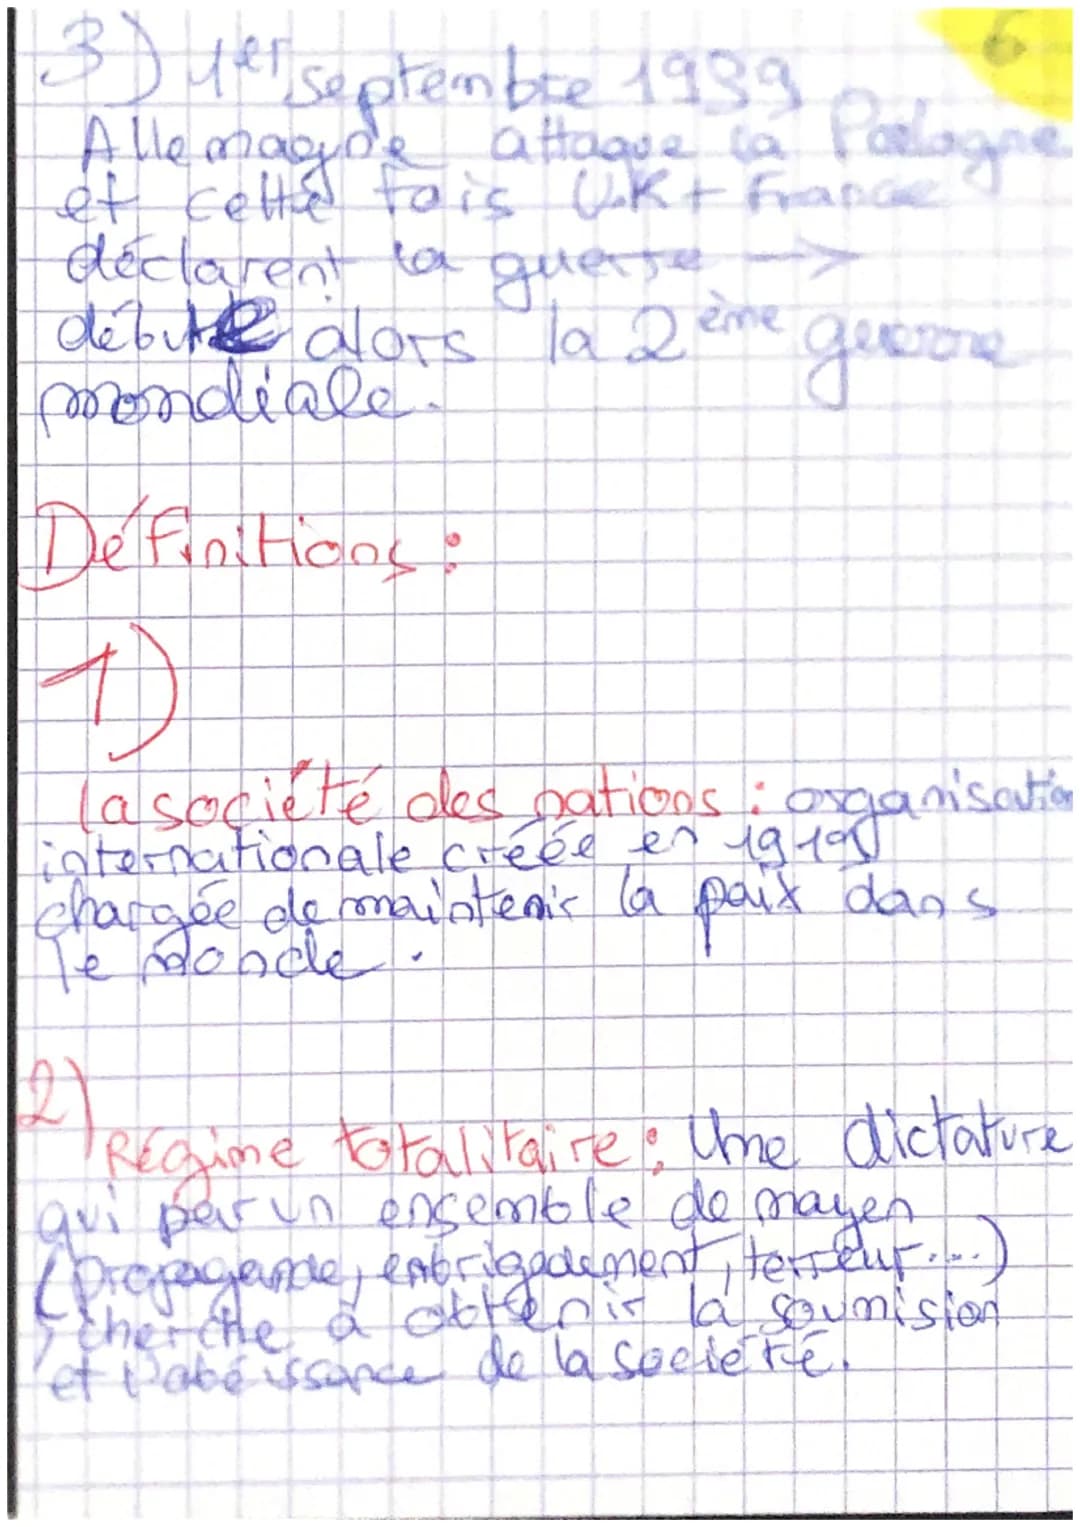 6
3) 1er septembre 1939
Allemagne attaque la Pologne
et cette fois U.K + France
déclarent la guerre -->
débute alors la 2ème guerre
mondiale.
Définitions :
1)
la société des nations : organisation
internationale créée en 1919
chargée de maintenir la paix dans
le monde.
2)
Régime totalitaire : Une dictature
qui par un ensemble de moyen
(propagande, enbrigadement, terreur...)
cherche à obtenir la soumision
et l'obéissance de la société.